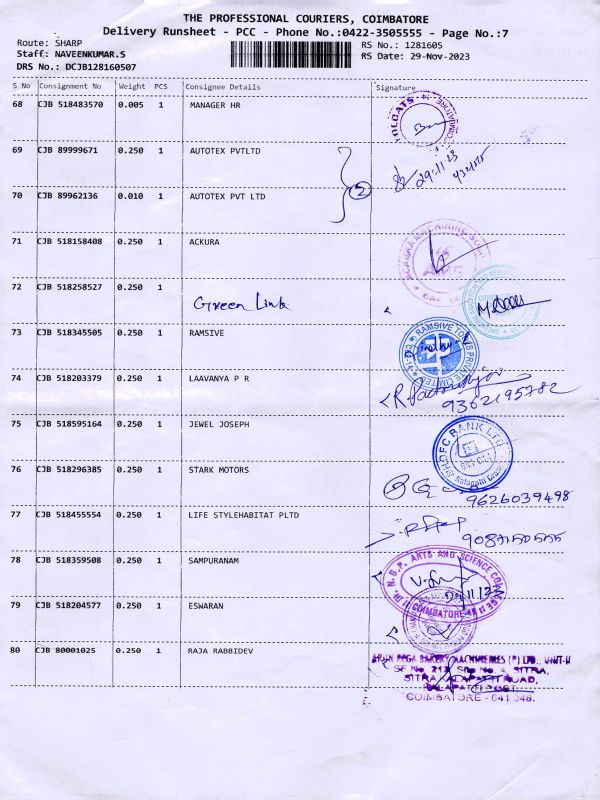 THE PROFESSIONAL COURIERS, COIMBATORE
Delivery Runsheet - PCC - Phone No.:0422-3505555 - Page No.:7
Route: SHARP
RS No.: 1281605
Staff: NAVEENKUMAR.S
RS Date: 29-Nov-2023
DRS No.: DCJB128160507
S No Consignment No Weight PCS Consignee Details Signature
68 CJB 518483570 0.005 1 MANAGER HR
69 CJB 89999671 0.250 1 AUTOTEX PVTLTD
29.11.23
2
70 CJB 89962136 0.010 1 AUTOTEX PVT LTD
71 CJB 518158408 0.250 1 ACKURA
72 CJB 518258527 0.250 1
Green Link
73 CJB 518345505 0.250 1 RAMSIVE
RAMSIVE TOOLS PRIVATE LIMITED
74 CJB 518203379 0.250 1 LAAVANYA P R
9362195782
75 CJB 518595164 0.250 1 JEWEL JOSEPH
HDFC BANK LTD
76 CJB 518296385 0.250 1 STARK MOTORS
9626039498
77 CJB 518455554 0.250 1 LIFE STYLEHABITAT PLTD
9087150555
78 CJB 518359508 0.250 1 SAMPURANAM
Dr. N.G.P. ARTS AND SCIENCE COLLEGE
COIMBATORE
79 CJB 518204577 0.250 1 ESWARAN
80 CJB 80001025 0.250 1 RAJA RABBIDEV
COIMBATORE - 641 048.